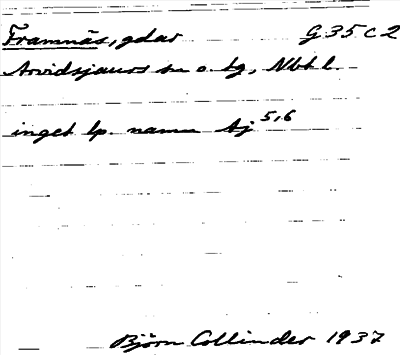 Framnäs, gdar G 35 c 2
Arvidsjaurs sn o. tg, Nbtl.
inget lp. namn Aj 5,6
Björn Collinder 1937